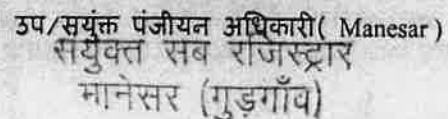 उप/सयुंक्त पंजीयन अधिकारी( Manesar )
सयुंक्त सब रजिस्ट्रार
मानेसर (गुड़गाँव)